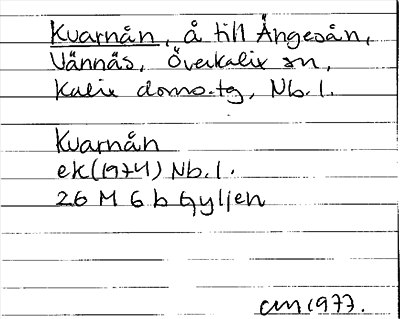 Kvarnån, å till Ängesån,
Vännäs, Överkalix sn,
Kalix doms.tg, Nb.l.
Kvarnån
ek(1974) Nb.l.
26 M 6 b Gyljen
cm 1977.